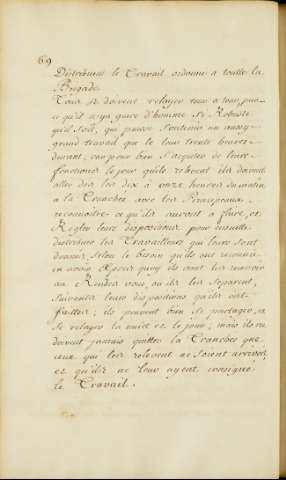 69
Distribuent le Travail ordonné a toutte la
Brigade.
Tous se doivent relayer tour a tour, par-
ce qu'il n'y a guere d'homme si Robuste
qu'il soit, qui puisse Soutenir un aussy
grand travail que le leur trente heures
durant; car pour bien s'aquiter de leurs
fonctions le jour qu'ils relevent ils doivent
aller des les dix a onze heures du matin
a la Tranchée avec les Principaux
reconnoitre ce qu'ils auront a faire, et
Regler leurs dispositions pour ensuitte
distribuer les Travailleurs qui leur sont
donnés, selon le besoin qu'ils ont reconnu
en avoir. Apres quoy ils vont les recevoir
au Rendez vous, ou ils les separent,
suivant leurs dispositions qu'ils ont
faittes; ils peuvent bien se partager, et
se relayer la nuit et le jour; mais ils ne
doivent jamais quitter la Tranchée que
ceux qui les relevent ne soient arrivés
et qu'ils ne leur ayent consigné
le Travail.